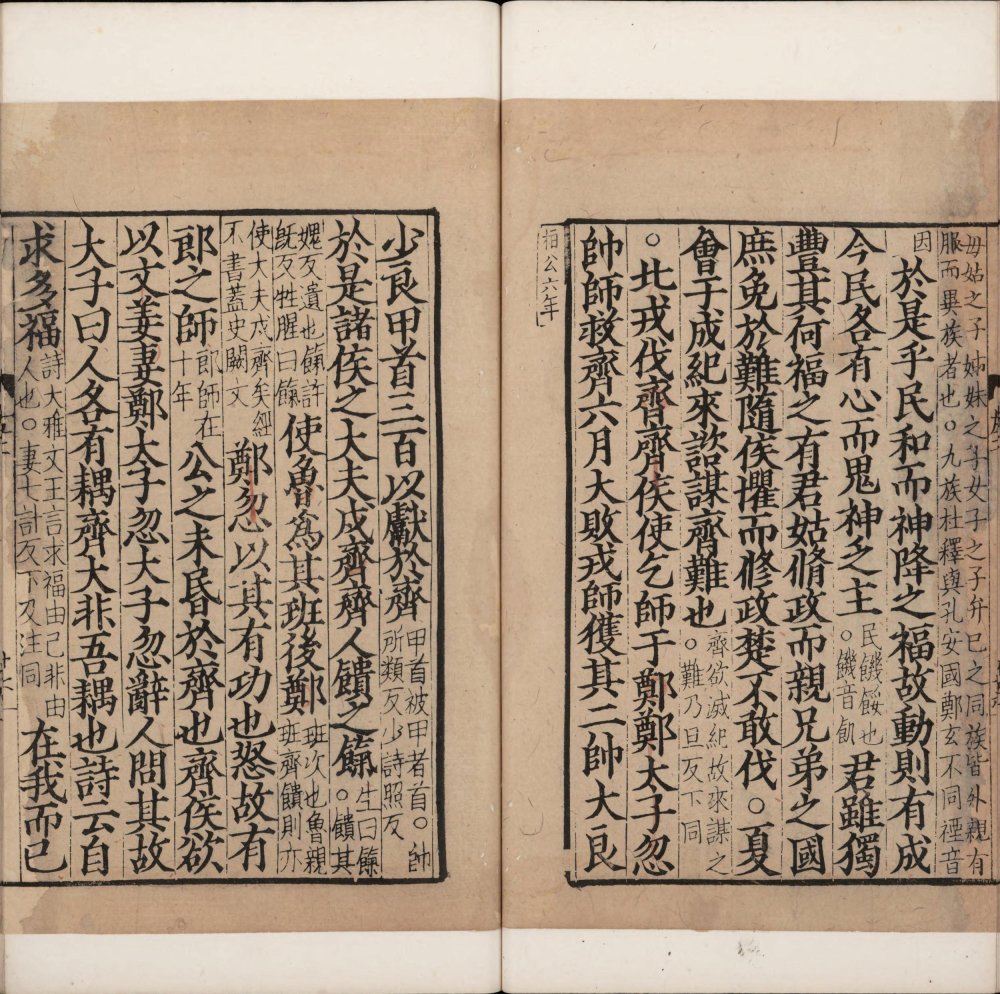 毋姑之子姊妹之子女子之子并已之同族皆外親有
服而異族者也。九族杜釋與孔安國鄭玄不同禋音
因 於是乎民和而神降之福故動則有成
今民各有心而鬼神乏主 民饑餒也。饑音飢 君雖獨
豐其何福之有君姑脩政而親兄弟之國
庶免於難隨侯懼而修政楚不敢伐。夏
會于成紀來諮謀齊難也 齊欲滅紀故來謀之。難乃旦反下同
。北戎伐齊齊侯使乞師于鄭鄭太子忽
帥師救齊六月大敗戎師獲其二帥大良
桓公六年
少良甲首三百以獻於齊 甲首被甲者首。帥所類反少詩照反
於是諸侯之大夫戍齊齊人饋之餼 生曰餼。饋其
媿反遺也餼許旣反牲腥曰餼 使魯為其班後鄭 班次也魯親班齊饋則亦
使大夫戍齊矣經不書蓋史闕文 鄭忽以其有功也怒故有
郎之師 郎師在十年 公之未昏於齊也齊侯欲
以文姜妻鄭大子忽大子忽辭人問其故
大子曰人各有耦齊大非吾耦也詩云自
求多福 詩大雅文王言求福由己非由人也。妻七計反下及注同 在我而已